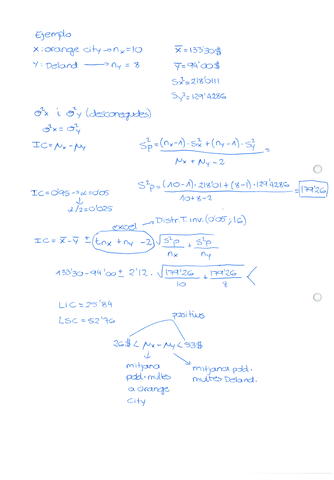 Ejemplo
X: orange city → nx=10
x̄ = 133'30$
Y: Deland → ny = 8
ȳ = 94'00$
Sx²=218'0111
Sy²=129'4286
σ²x i σ²y (desconegudes)
σ²x = σ²y
IC = μx - μy
S²p = (nx-1)·S²x + (ny-1)·S²y / nx + ny - 2 =
IC=0'95 → α=0'05
α/2=0'025
S²p = (10-1)·218'01 + (8-1)·129'4286 / 10+8-2 = 179'26
excel → Distr.T.inv.(0'05;16)
IC = x̄-ȳ ± (t nx + ny - 2) √ S²p/nx + S²p/ny
133'30-94'00 ± 2'12 · √ 179'26/10 + 179'26/8 <
LIC = 25'84
LSC = 52'76
positius
26$ < μx - μy < 53$
mitjana pob. multes a orange city
mitjana pob. multes Deland.